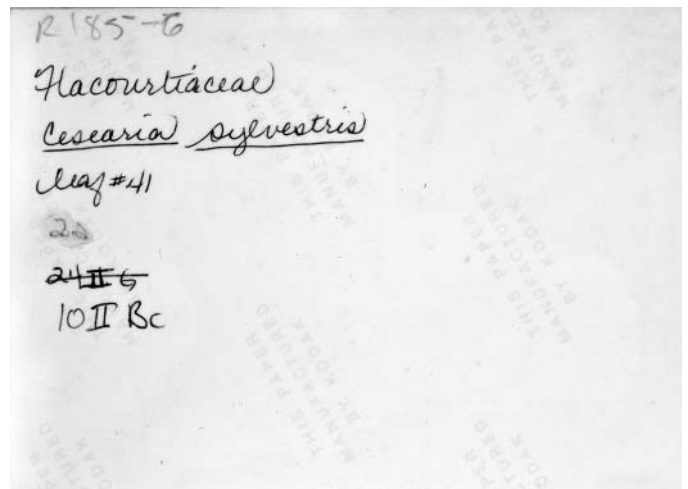 R185-6
Flacourtiaceae
Cesearia sylvestris
leaf #41
22
24 II G
10 II Bc
THIS PAPER
MANUFACTURED
BY KODAK